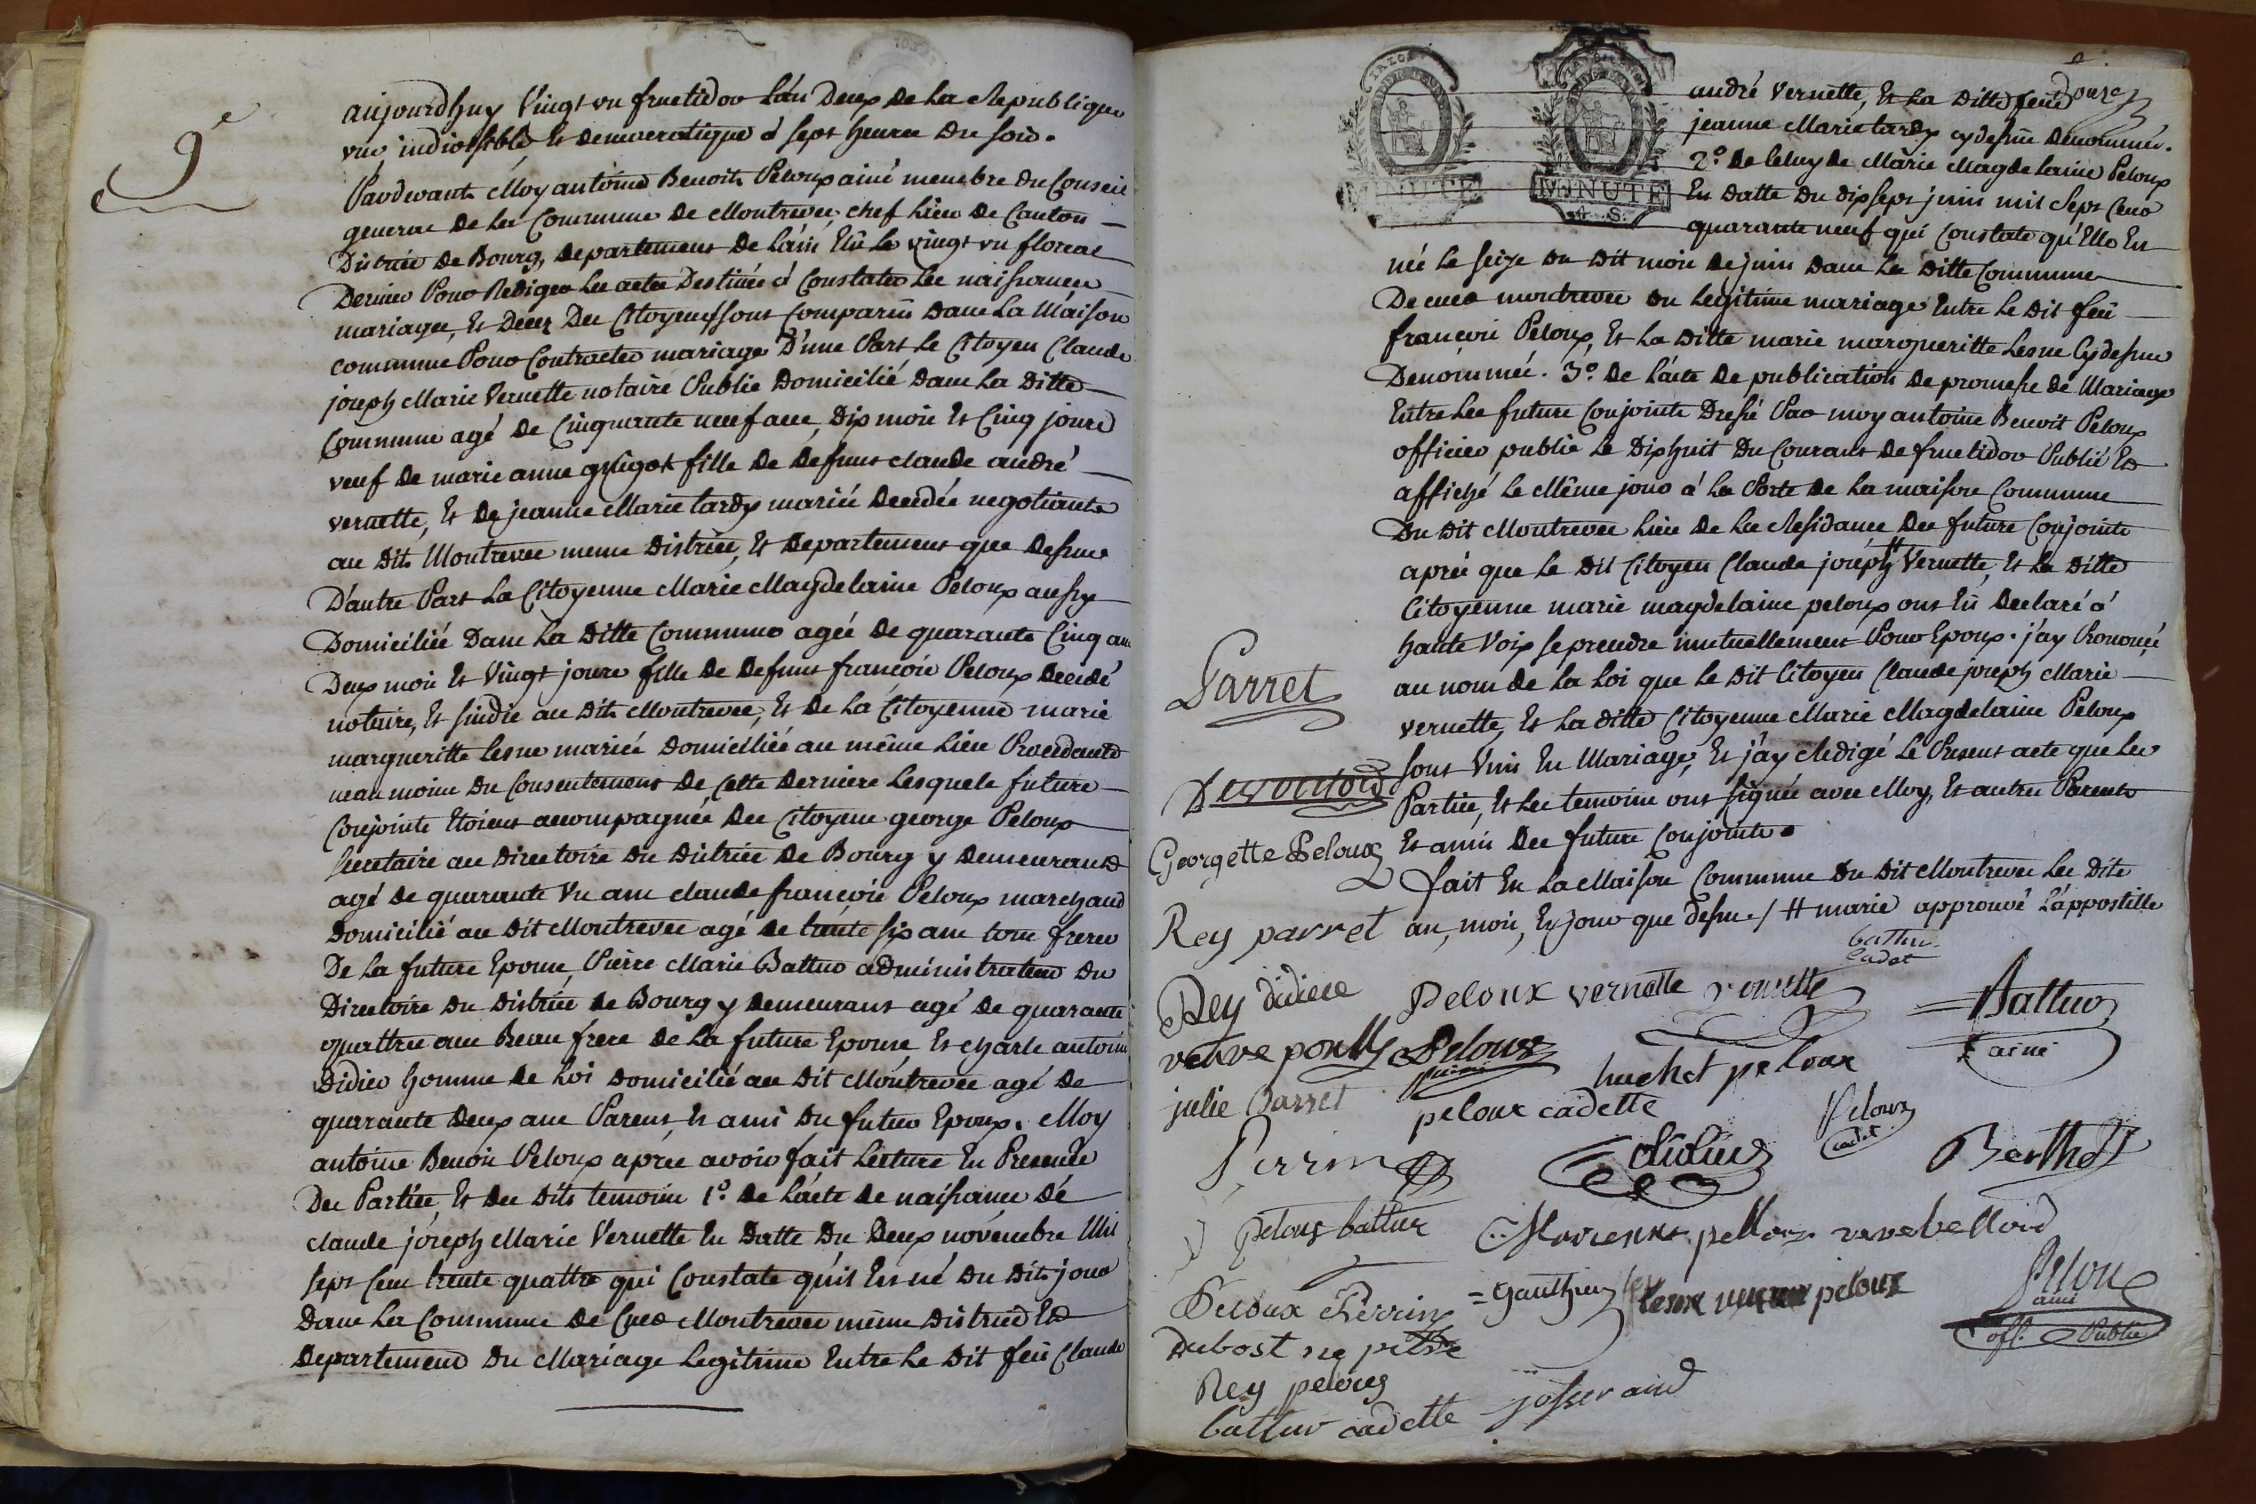 9e
aujourdhuy Vingt un fructidor L'an Deux de La Republique
une indivisible, Et democratique à Sept heures Du Soir.
Pardevant Moy antoine Benoit Peloux ainé membre Du Conseil
general de La Commune de Montrevel, chef Lieu de Canton
District De Bourg, Departement de L'ain Elû Le vingt un floreal
Dernier Pour Rediger Les actes Destinés à Constater Les naissances
mariages, Et Décés Des Citoyens sont Comparûs Dans La Maison
commune Pour Contracter mariage D'une Part Le Citoyen Claude
joseph Marie Vernette notaire Public Domicilié Dans La Ditte
Commune agé de Cinquante neuf ans, Dix mois Et Cinq jours
veuf de marie anne fille De Defunt claude andré
vernette, Et De jeanne Marie tardy mariée Decedée negotiante
au Dit Montrevel meme District, Et Departement que Dessus
D'autre Part La Citoyenne Marie Magdelaine Peloux aussy
Domiciliée Dans La Ditte Commune agée de quarante Cinq ans
Deux mois Et Vingt jours fille De Defunt françois Peloux Decedé
notaire, Et sindic au Dit Montrevel, Et De La Citoyenne marie
margueritte Lesne mariée Domiciliée au même Lieu Procedante
neanmoins Du Consentement De Cette Derniere Lesquels futurs
Conjoints Etoient accompagnés Des Citoyens george Peloux
Secretaire au Directoire Du District De Bourg y Demeurant
agé de quarante Un ans claude françois Peloux marchand
Domicilié au Dit Montrevel agé de trente Six ans tous freres
De La future Epouse, Pierre Marie Battur administrateur Du
Directoire Du District de Bourg y Demeurant agé de quarante
quattre ans Beau frere de La future Epouse Et charle antoine
Didier homme de Loi Domicilié au Dit Montrevel agé De
quarante Deux ans Parent, Et ami Du futur Epoux. Moy
antoine Benoit Peloux après avoir fait Lecture En Presence
Des Parties, Et Des Dits temoins 1º De L'acte De naissance De
claude joseph Marie Vernette En Datte Du Deux novembre Mil
Sept Cent trente quattre qui Constate qu'il Est né Du Dit jour
Dans La Commune De Cuet Montrevel même District Et
Departement Du Mariage Legitime Entre Le Dit feû Claude
MINUTE
MINUTE
4. S.
Douze
andré Vernette, Et La Ditte feue
jeanne Marie tardy cydessus Denommés.
2º De Celuy De Marie Magdelaine Peloux
En Datte Du Dix Sept juin mil Sept Cent
quarante neuf qui Constate qu'Elle Est
née Le Seize Du Dit mois De juin Dans La Ditte Commune
De cuet montrevel Du Legitime mariage Entre Le Dit feû
françois Peloux, Et La Ditte marie margueritte Lesne Cydessus
Denommés. 3º De L'acte De publication De promesse de Mariage
Entre Les futurs Conjoints Dressé Par moy antoine Benoit Peloux
officier public Le Dix huit Du Courant De fructidor Publié Et
affiché Le Même jour à La Porte De La maison Commune
Du Dit Montrevel Lieu De La Residance Des futurs Conjoints
après que Le Dit Citoyen Claude joseph # Vernette, Et La Ditte
Citoyenne marie magdelaine peloux ont Eû Declaré à
haute Voix se prendre mutuellement Pour Epoux. j'ay Prononcé
au nom De La Loi que Le Dit Citoyen Claude joseph Marie
vernette, Et La ditte Citoyenne Marie Magdelaine Peloux
Sont Unis En Mariage, Et j'ay Redigé Le Present acte que Les
Parties, Et Les temoins ont Signés avec Moy, Et autres Parents
Et amis Des futurs Conjoints.
fait En La Maison Commune Du Dit Montrevel Les Dits
an, mois, Et jour que Dessus / # marie approuvé L'appostille
Parret
Georgette Peloux
Rey parret
Rey didiere
veuve
julie Parret
Perrin
peloux battur
Peloux Perrin
Dubost
Rey peloux
battur cadette
Peloux vernette vernette
battur
Cadet
Battur
ainé
Peloux
huchet peloux
peloux cadette
Peloux
cadet
Didier
Berthet
pelloux veuve bellord
Gauthier
peloux
josserand
Peloux
ainé
off. Public